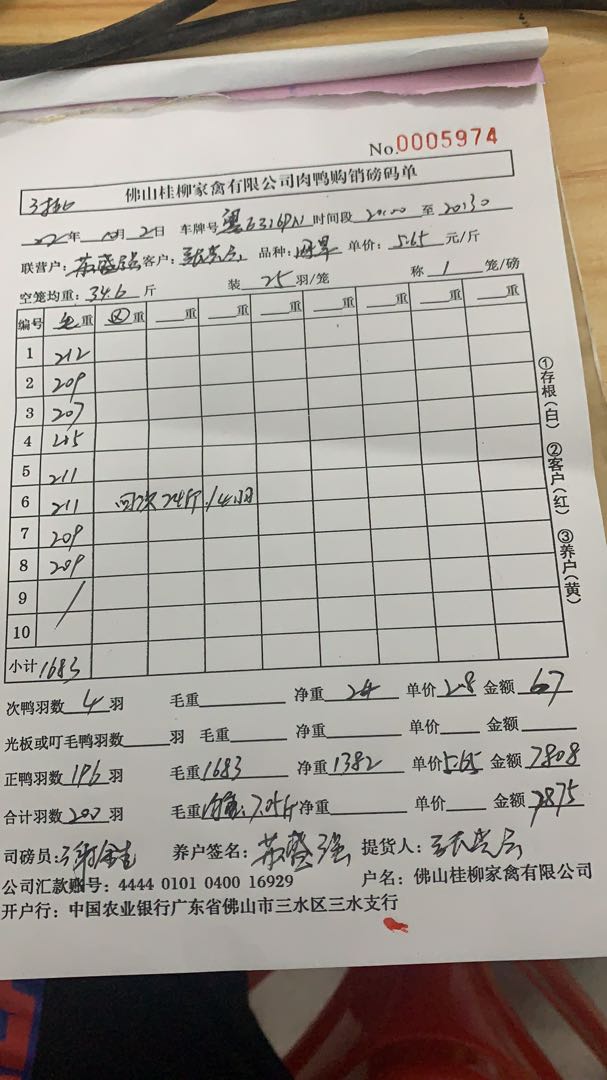 No.0005974
佛山桂柳家禽有限公司肉鸭购销磅码单
22年 10月 2日 车牌号 粤E316PN 时间段 20:00 至 20:30
联营户: 盛强 客户: 品种: 单价: 5.65 元/斤
空笼均重: 34.6 斤 装 25 羽/笼 称 1 笼/磅
编号 毛重 皮重 重 重 重 重 重 重 重
1 212
2 209
3 207
4 215
5 211
6 211 回次24斤/4羽
7 209
8 209
9 /
10
小计 1683
次鸭羽数 4 羽 毛重 净重 24 单价 2.8 金额 67
光板或叮毛鸭羽数 羽 毛重 净重 单价 金额
正鸭羽数 196 羽 毛重 1683 净重 1382 单价 5.65 金额 7808
合计羽数 200 羽 毛重 均重: 7.05斤 净重 单价 金额 7875
司磅员: 谢 养户签名: 盛强 提货人:
公司汇款账号: 4444 0101 0400 16929 户名: 佛山桂柳家禽有限公司
开户行: 中国农业银行广东省佛山市三水区三水支行
①存根(白) ②客户(红) ③养户(黄)